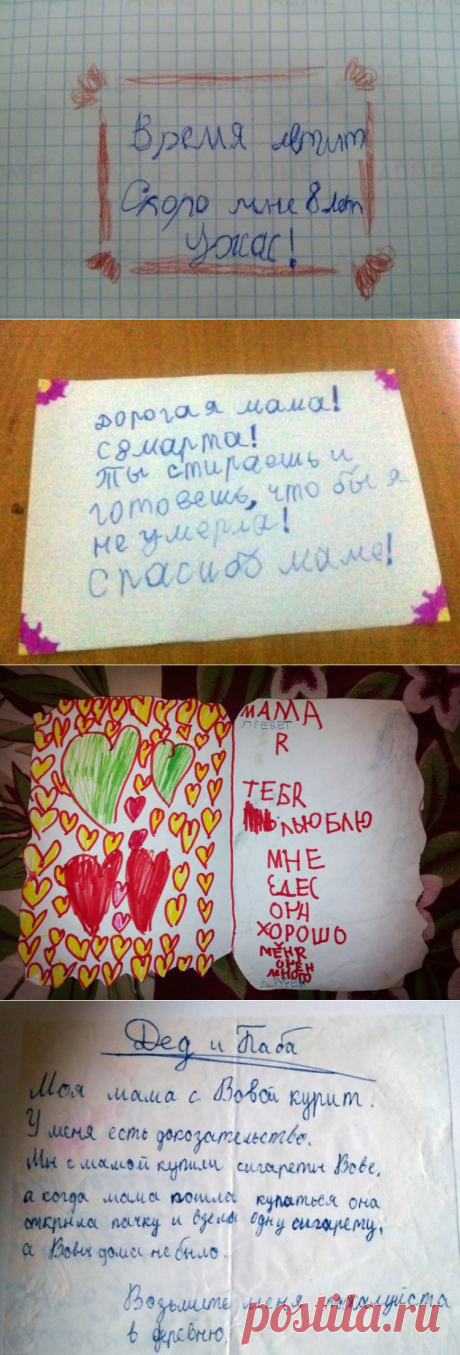 Время летит
Скоро мне 8 лет
Ужас!
дорогая мама!
с 8 марта!
ты стираешь и
готовешь, что бы я
не умерла!
спасибо маме!
МАМА
ПРЕВЕТ
R
ТЕБR
ЛЮБЛЮ
МНЕ
ЕДЕС
ХОРОШО
МЕНR
ОЧЕН
МНОГО
Дед и Баба
Моя мама с Вовой курит.
У меня есть докозательство.
Мы с мамой купили сигареты Вове,
а когда мама пошла купаться она
открыла пачку и взела одну сигарету,
а Вовы дома не было.
Возьмите меня пожалуйста
в деревню.
postila.ru